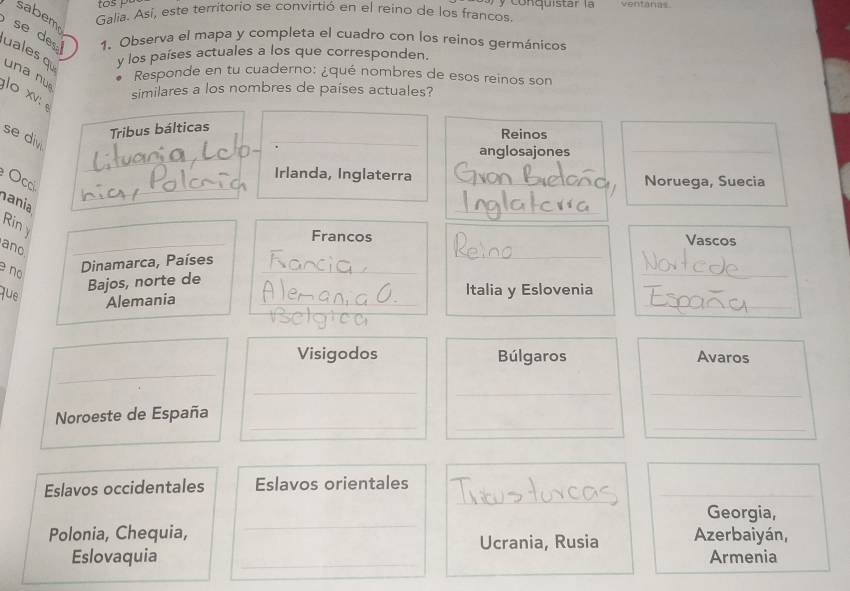 y conquistar la
ventanas.
Galia. Así, este territorio se convirtió en el reino de los francos.
sabemo
se des
luales qu
una nue
glo XV: e
se divi
Occi
nania
Rin y
ano
e no
que
1. Observa el mapa y completa el cuadro con los reinos germánicos
y los países actuales a los que corresponden.
• Responde en tu cuaderno: ¿qué nombres de esos reinos son
similares a los nombres de países actuales?
Tribus bálticas
Lituania, Leto-
nia, Polonia
Irlanda, Inglaterra
Reinos
anglosajones
Gran Bretaña,
Inglaterra
Noruega, Suecia
Dinamarca, Países
Bajos, norte de
Alemania
Francos
Francia,
Alemania O.
Belgica
Reino
Italia y Eslovenia
Vascos
Norte de
España
Noroeste de España
Visigodos
Búlgaros
Avaros
Eslavos occidentales
Polonia, Chequia,
Eslovaquia
Eslavos orientales
Tribus turcas
Ucrania, Rusia
Georgia,
Azerbaiyán,
Armenia